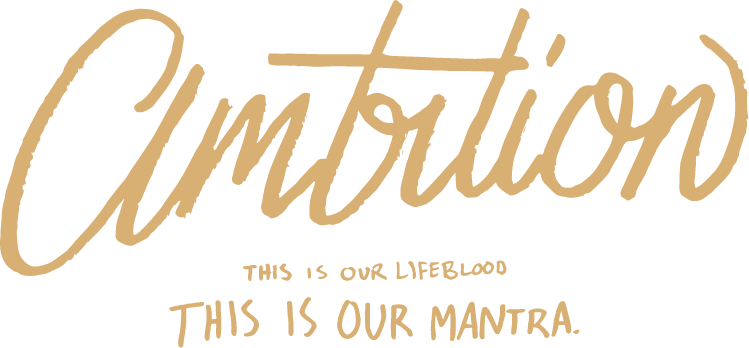 Ambition
THIS IS OUR LIFEBLOOD
THIS IS OUR MANTRA.